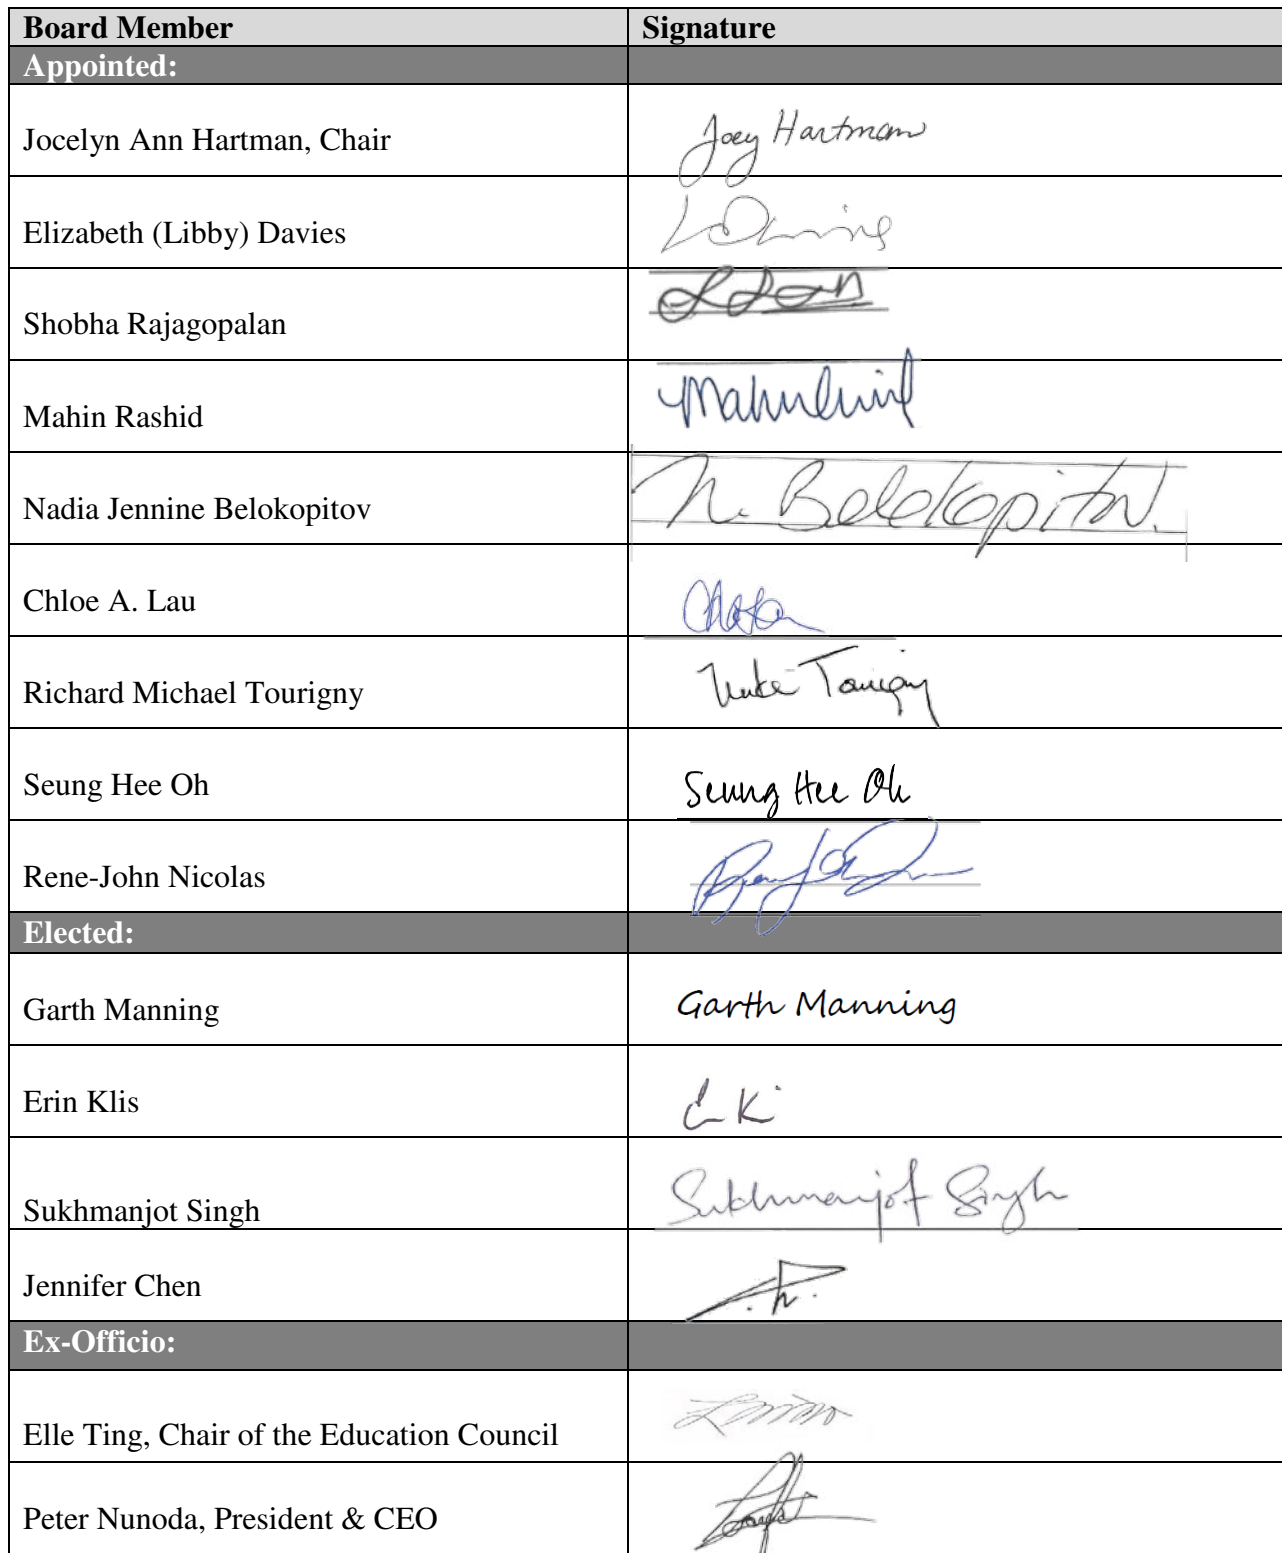 Board Member Signature
Appointed:
Jocelyn Ann Hartman, Chair Joey Hartman
Elizabeth (Libby) Davies
Shobha Rajagopalan
Mahin Rashid
Nadia Jennine Belokopitov N. Belokopitov.
Chloe A. Lau
Richard Michael Tourigny Mike Tourigny
Seung Hee Oh Seung Hee Oh
Rene-John Nicolas
Elected:
Garth Manning Garth Manning
Erin Klis E K
Sukhmanjot Singh Sukhmanjot Singh
Jennifer Chen
Ex-Officio:
Elle Ting, Chair of the Education Council
Peter Nunoda, President & CEO